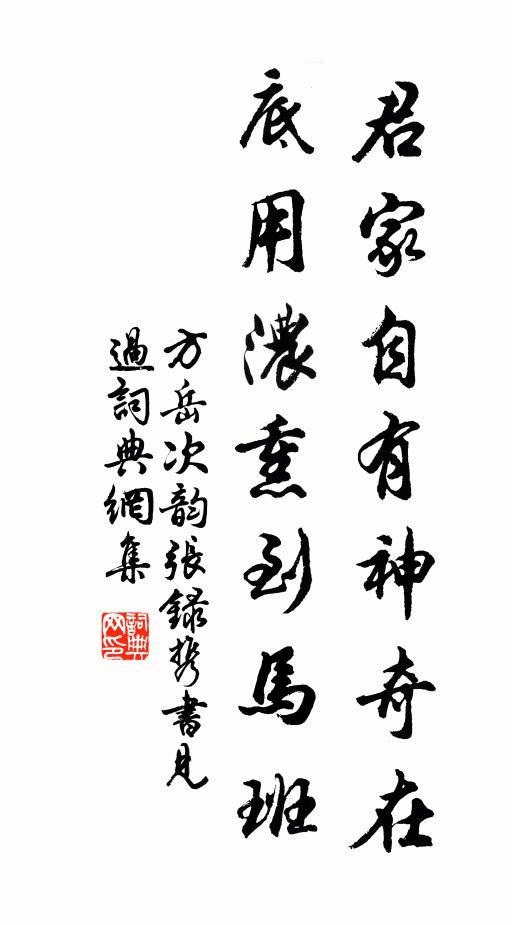 君家自有神奇在
底用濃熏到馬班
方岳次韵張録携書見
過詞典網集
詞典網印